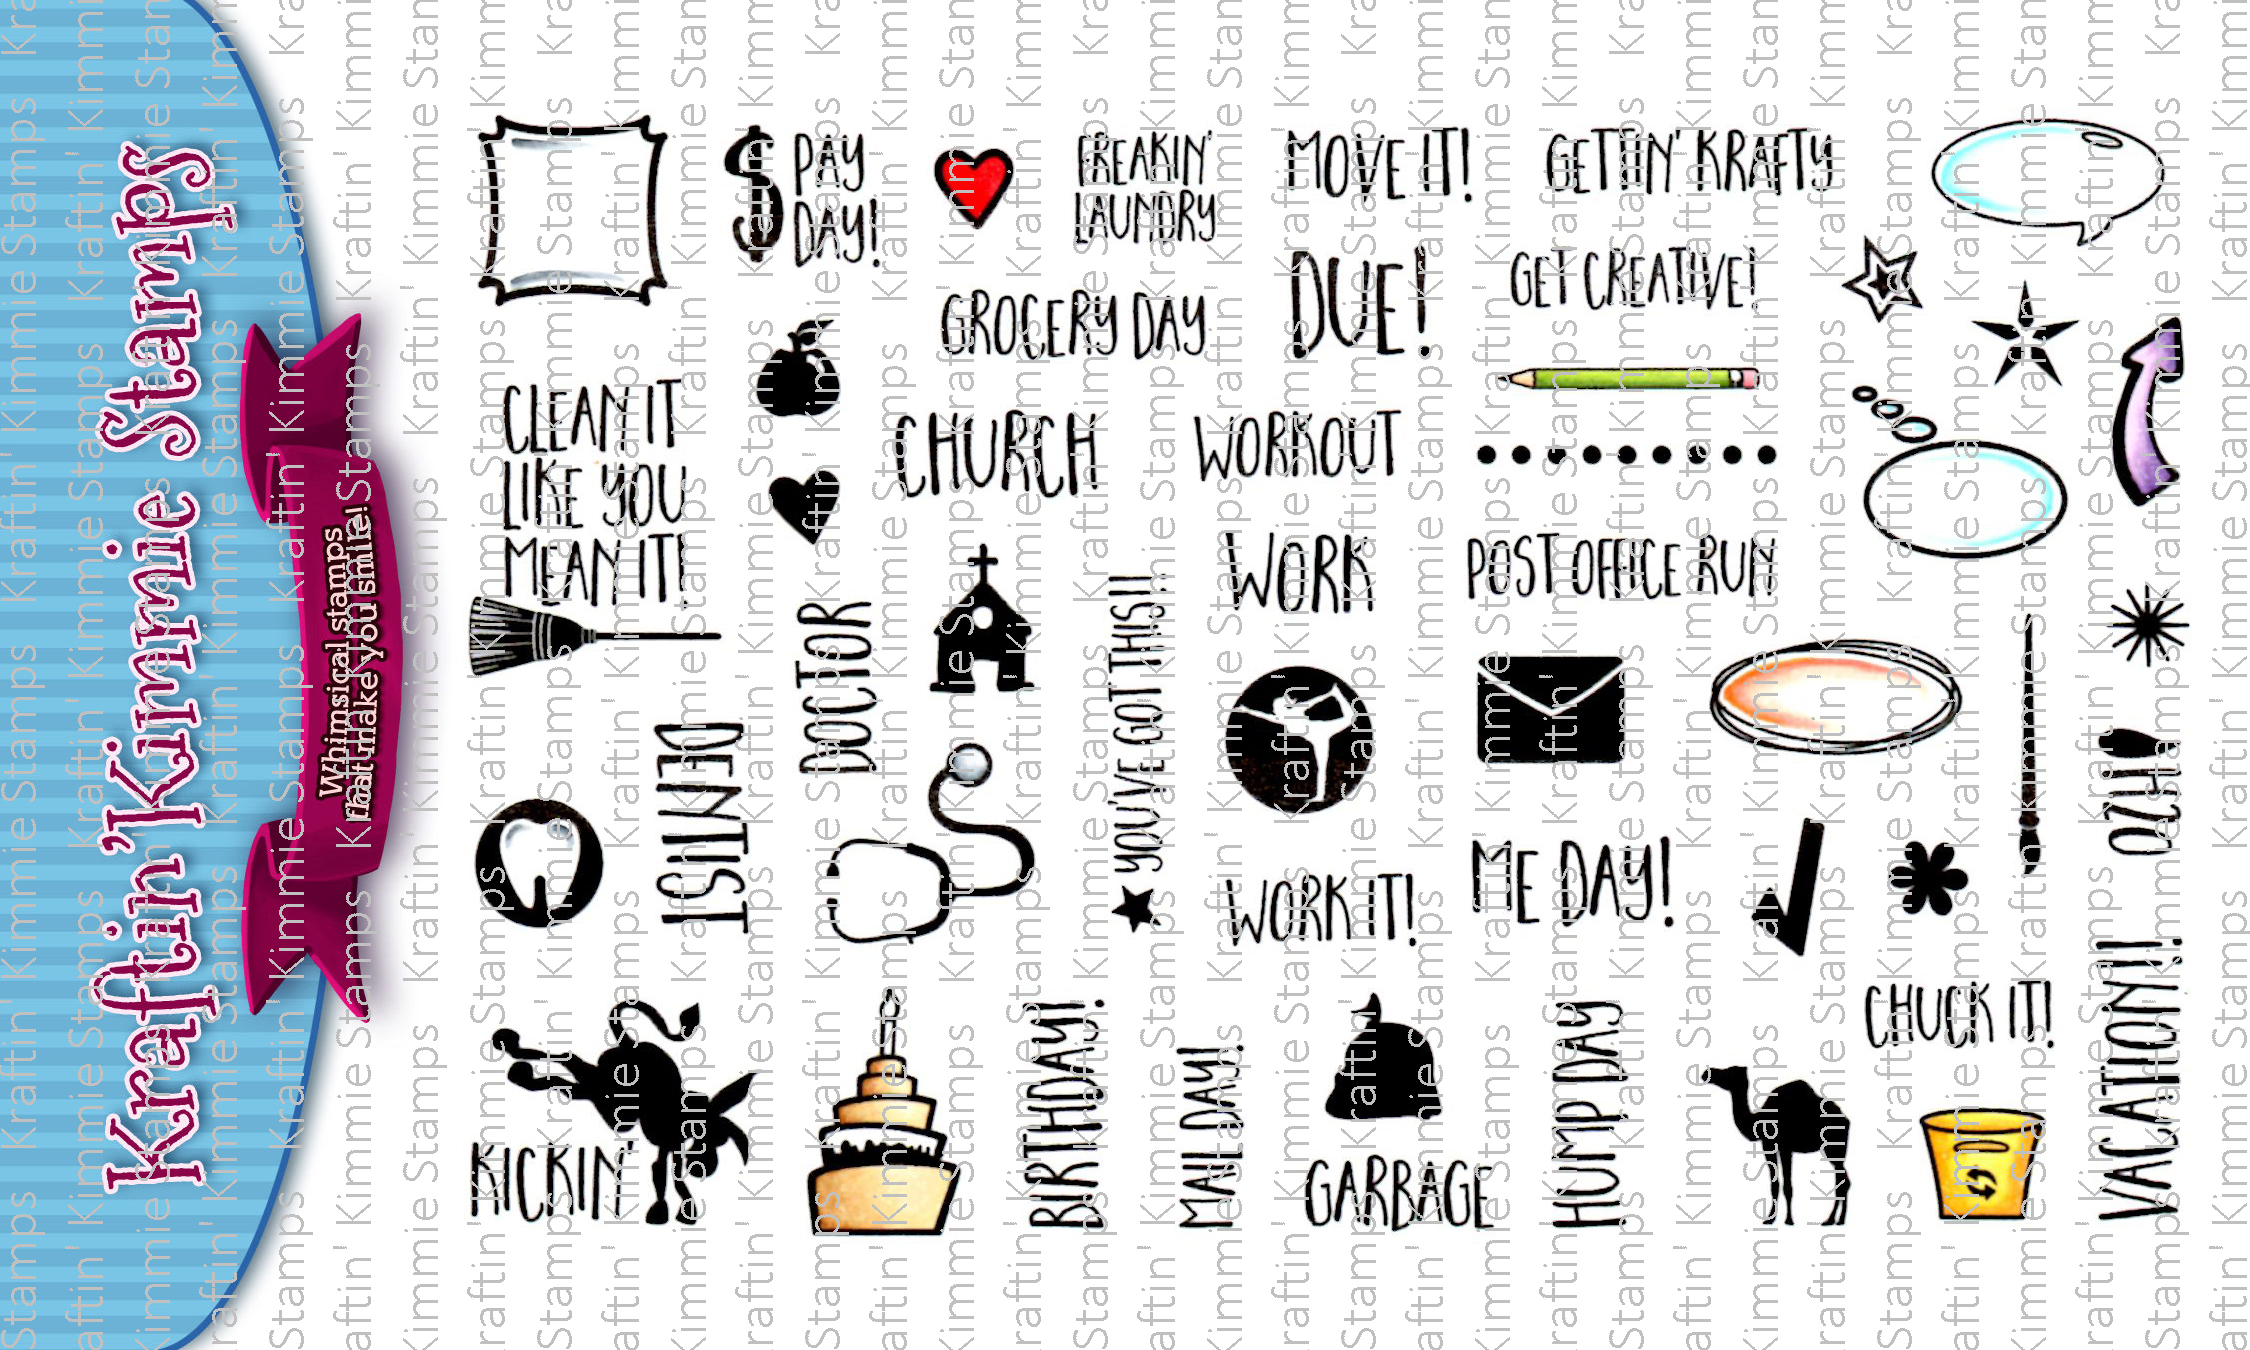 Kraftin' Kimmie Stamps
Whimsical stamps
that make you smile!
$ PAY
DAY!
FREAKIN'
LAUNDRY
MOVE IT!
GETTIN' KRAFTY
DUE!
GET CREATIVE!
GROCERY DAY
CLEAN IT
LIKE YOU
MEAN IT!
CHURCH
WORKOUT
WORK
POST OFFICE RUN
DOCTOR
YOU'VE GOT THIS!!
DENTIST
WORK IT!
ME DAY!
KICKIN'
BIRTHDAY!!
MAIL DAY!
GARBAGE
HUMP DAY
CHUCK IT!
VACATION!!
H2O
Kraftin' Kimmie Stamps